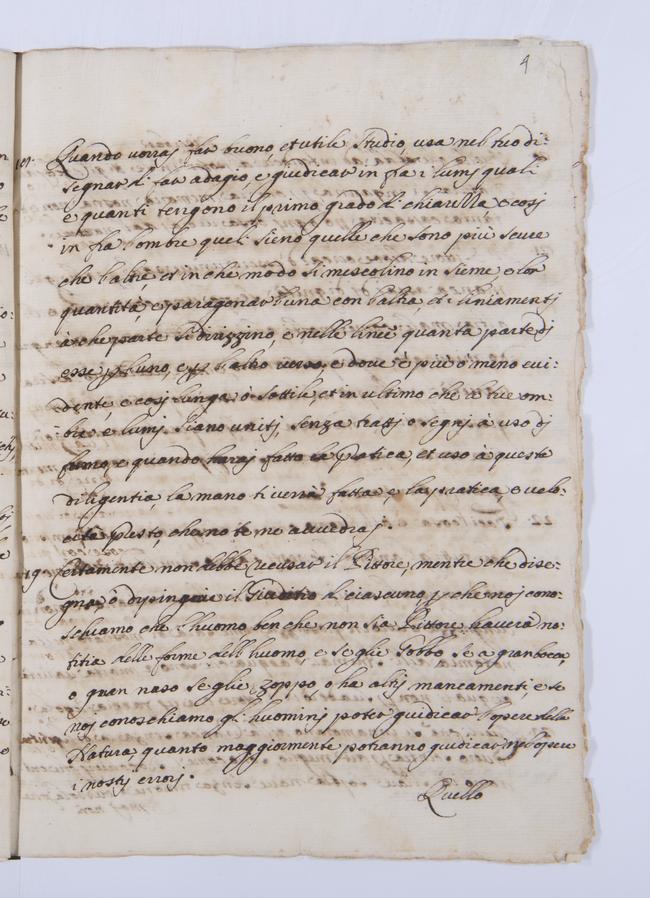 4
Quando uorraj far buono, et utile studio, usa nel tuo di-
segnar di far adagio, e giudicar in fra i lumj quali
e quanti tengono il primo grado di chiarezza, e cosj
in fra l'ombre quali sieno quelle che sono più scure
che l'altre, et in che modo si mescolino in sieme, e lor
quantità, e paragonar l'una con l'altra, et i liniamentj
à che parte si dirizzino, e nelle linee quanta parte dj
esse p l'uno, e p l'altro verso, e dove è più o meno eui-
dente, e cosj lunga ò sottile, et in ultimo che le tue om-
bre e lumj siano unitj, senza trattj o segnj à uso dj
fumo, e quando haraj fatto la pratica, et uso à questa
diligentia, la mano ti verrà fatta e, la pratica, e velo-
cità presto, che no te ne avvedraj.
19 Certamente non debbe recusar il Pittore, mentre che dise-
gna, ò dipingnie il Giuditio di ciascuno, p che noj cono-
schiamo che l'huomo ben che non sia Pittore, haverà no-
titia delle forme dell'huomo, e se glie Gobbo se a gran bocca,
o gran naso se glie Zoppo, o ha altrj mancamenti, e se
noj conoschiamo gl'huominj poter giudicar l'opere della
Natura, quanto maggiormente potranno giudicar
i nostrj errorj.
Quello